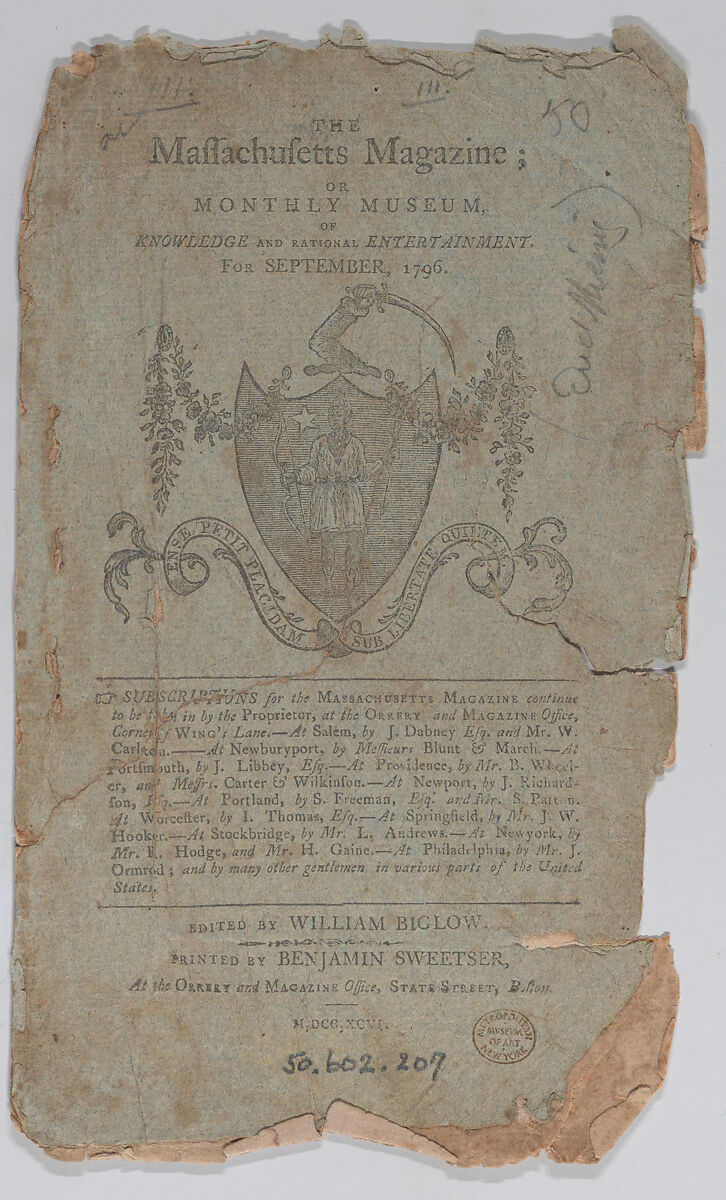 III.
50
THE
Maſſachuſetts Magazine;
OR
MONTHLY MUSEUM,
OF
KNOWLEDGE AND RATIONAL ENTERTAINMENT.
FOR SEPTEMBER, 1796.
ENSE PETIT PLACIDAM SUB LIBERTATE QUIETEM
☞ SUBSCRIPTIONS for the MASSACHUSETTS MAGAZINE continue
to be taken in by the Proprietor, at the ORRERY and MAGAZINE Office,
Corner of WING's Lane.—At Salem, by J. Dabney Eſq. and Mr. W.
Carlton.——At Newburyport, by Meſſieurs Blunt & March.—At
Portſmouth, by J. Libbey, Eſq.—At Providence, by Mr. B. Wheel-
er, and Meſſrs. Carter & Wilkinſon.—At Newport, by J. Richard-
ſon, Eſq.—At Portland, by S. Freeman, Eſq. and Mr. S. Patten.
At Worceſter, by I. Thomas, Eſq.—At Springfield, by Mr. J. W.
Hooker.—At Stockbridge, by Mr. L. Andrews.—At Newyork, by
Mr. R. Hodge, and Mr. H. Gaine.—At Philadelphia, by Mr. J.
Ormrod; and by many other gentlemen in various parts of the United
States.
EDITED BY WILLIAM BIGLOW.
PRINTED BY BENJAMIN SWEETSER,
At the ORRERY and MAGAZINE Office, STATE STREET, Boſton.
M,DCC,XCVI.
METROPOLITAN
MUSEUM
OF ART
NEW YORK
50.602.207